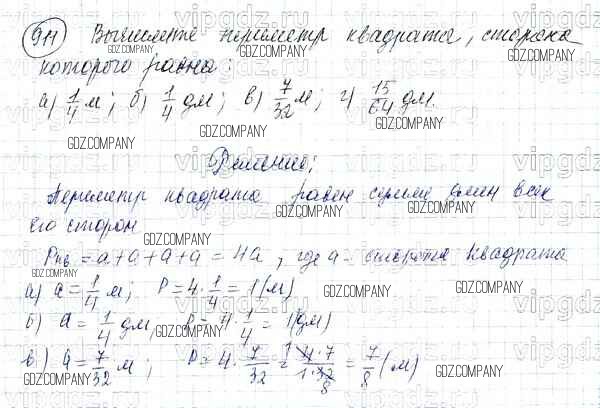 911 Вычислите периметр квадрата, сторона
которого равна:
а) 1/4 м; б) 1/4 дм; в) 7/32 м; г) 15/64 дм.
Решение:
Периметр квадрата равен сумме длин всех
его сторон
Pкв = a+a+a+a = 4a, где a - сторона квадрата
а) a = 1/4 м; P = 4 · 1/4 = 1 (м)
б) a = 1/4 дм, P = 4 · 1/4 = 1 (дм)
в) a = 7/32 м; P = 4 · 7/32 = 4·7/1·32 = 7/8 (м)
GDZ.COMPANY
vipgdz.ru